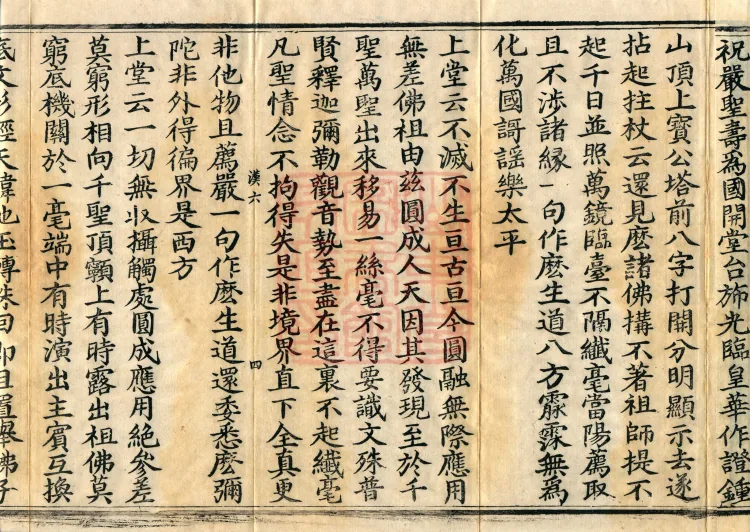 祝嚴聖壽爲國開堂台斾光臨皇華作證鍾
山頂上寳公塔前八字打開分明顯示去遂
拈起拄杖云還見麽諸佛搆不著祖師提不
起千日並照萬鏡臨臺不隔纖毫當陽薦取
且不涉諸緣一句作麽生道八方霡霂無爲
化萬國謌謡樂太平
上堂云不滅不生亘古亘今圓融無際應用
無差佛祖由兹圓成人天因其發現至於千
聖萬聖出來移易一絲毫不得要識文殊普
賢釋迦彌勒觀音勢至盡在這裏不起纖毫
凡聖情念不拘得失是非境界直下全真更
漢六 四
非他物且薦嚴一句作麽生道還委悉麽彌
陀非外得徧界是西方
上堂云一切無收攝觸處圓成應用絶參差
莫窮形相向千聖頂𩕳上有時露出祖佛莫
窮底機關於一毫端中有時演出主賓互換
底文彩經天緯地玉轉珠回即且置舉拂子